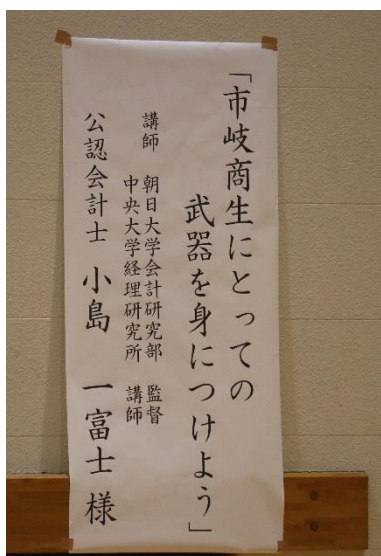 「市岐商生にとっての
武器を身につけよう」
講師 朝日大学会計研究部 監督
中央大学経理研究所 講師
公認会計士 小島 一富士 様